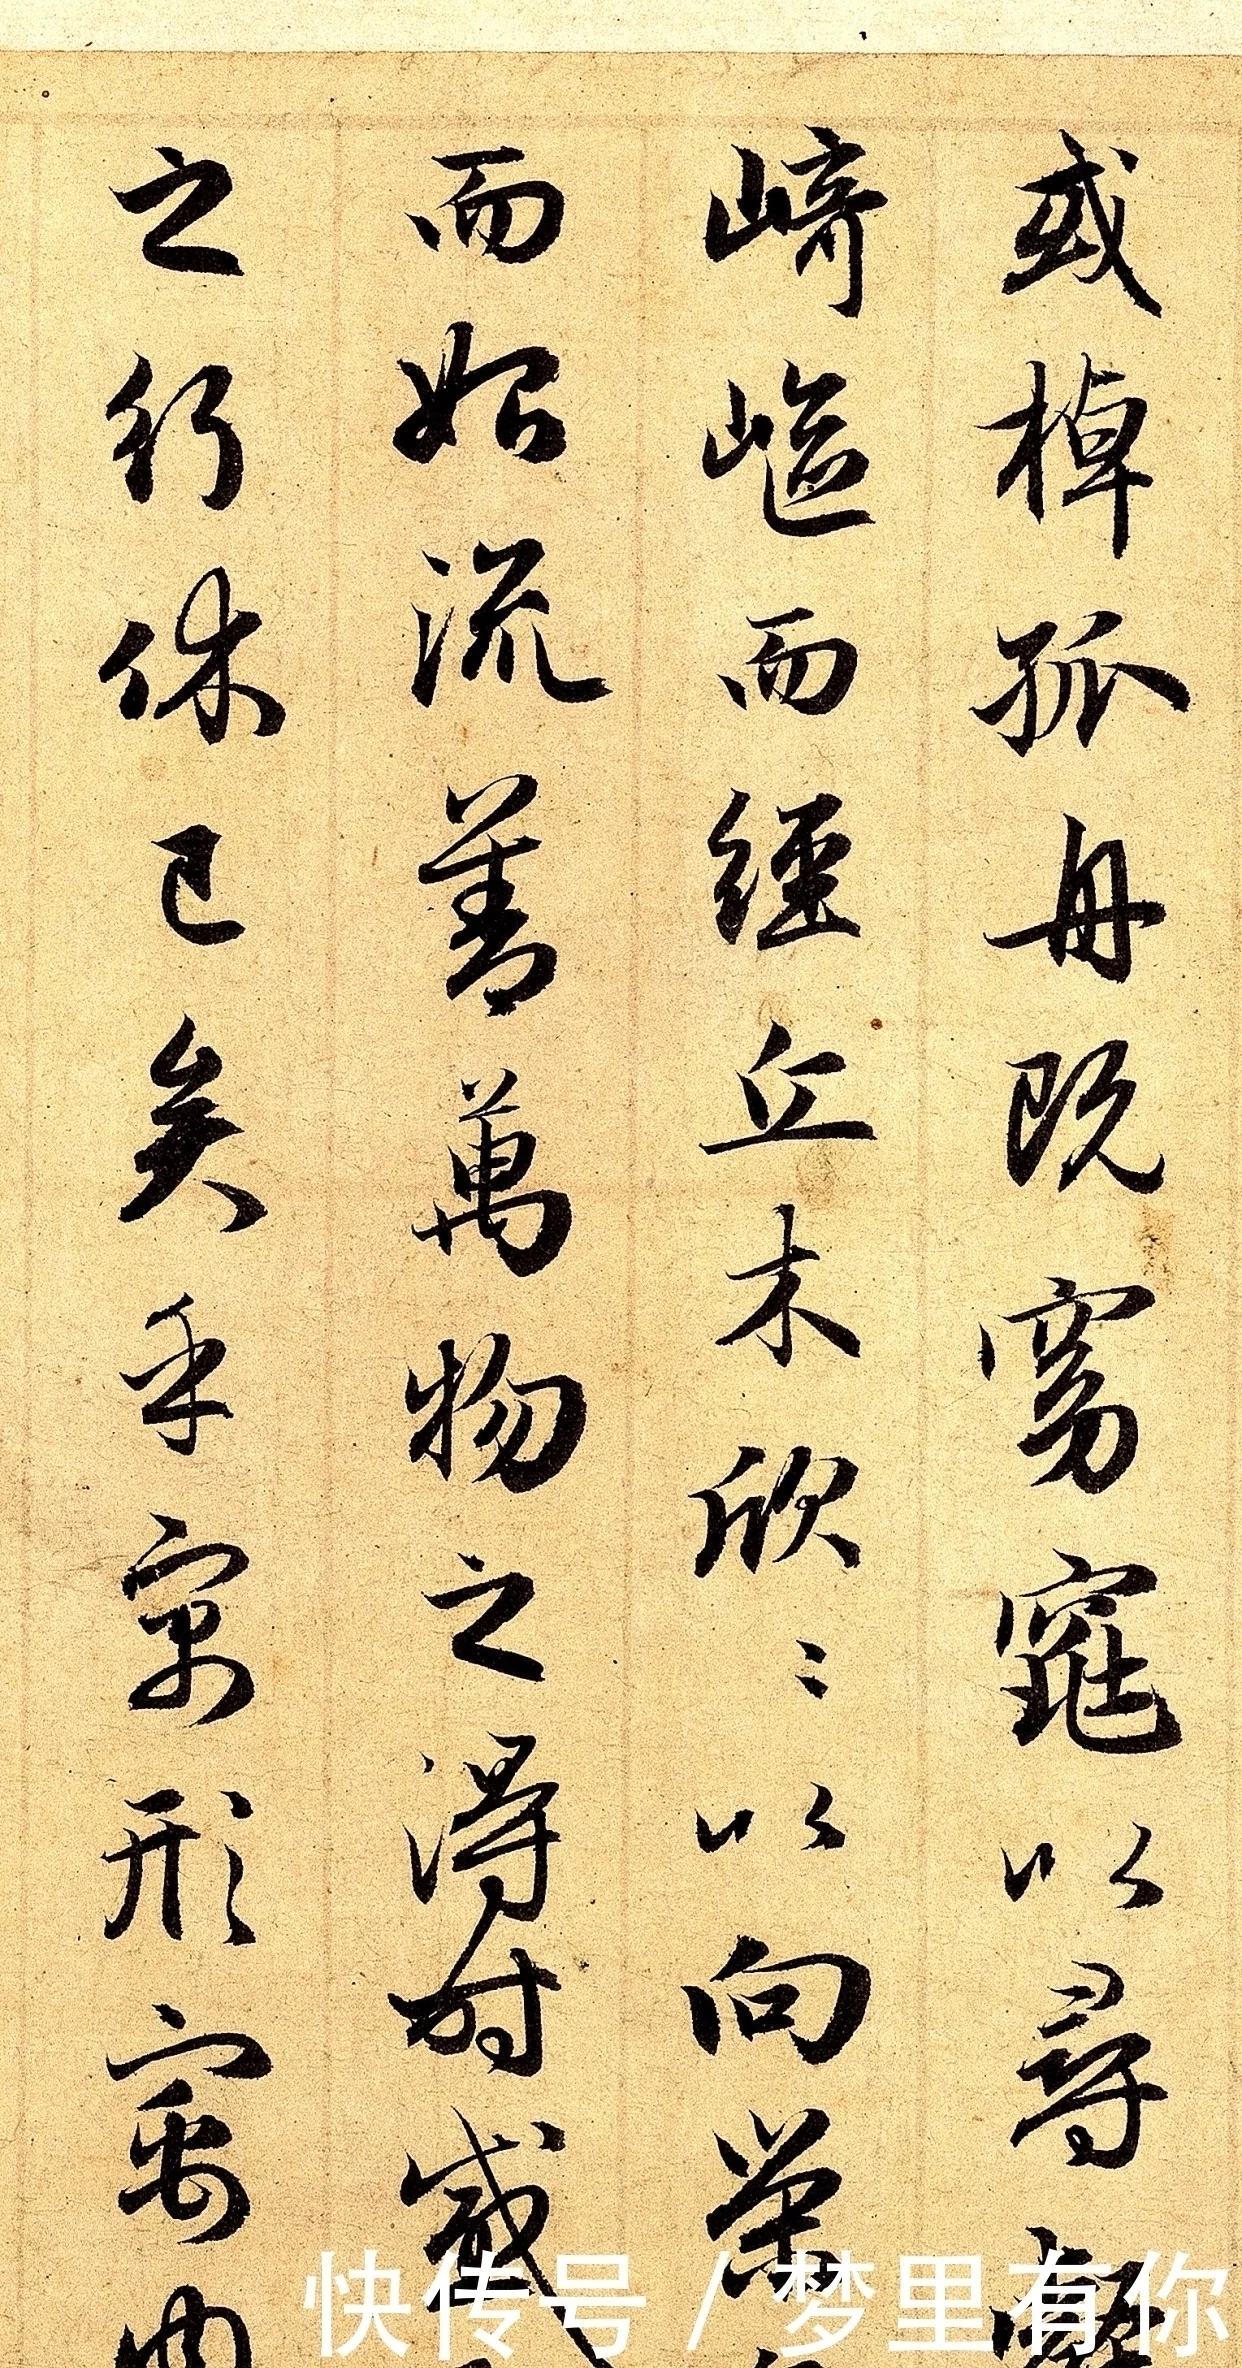 或棹孤舟既窈窕以尋壑
崎嶇而經丘木欣〻以向榮
而始流善萬物之得時感
之行休已矣乎寓形寓內
快传号 / 梦里有你